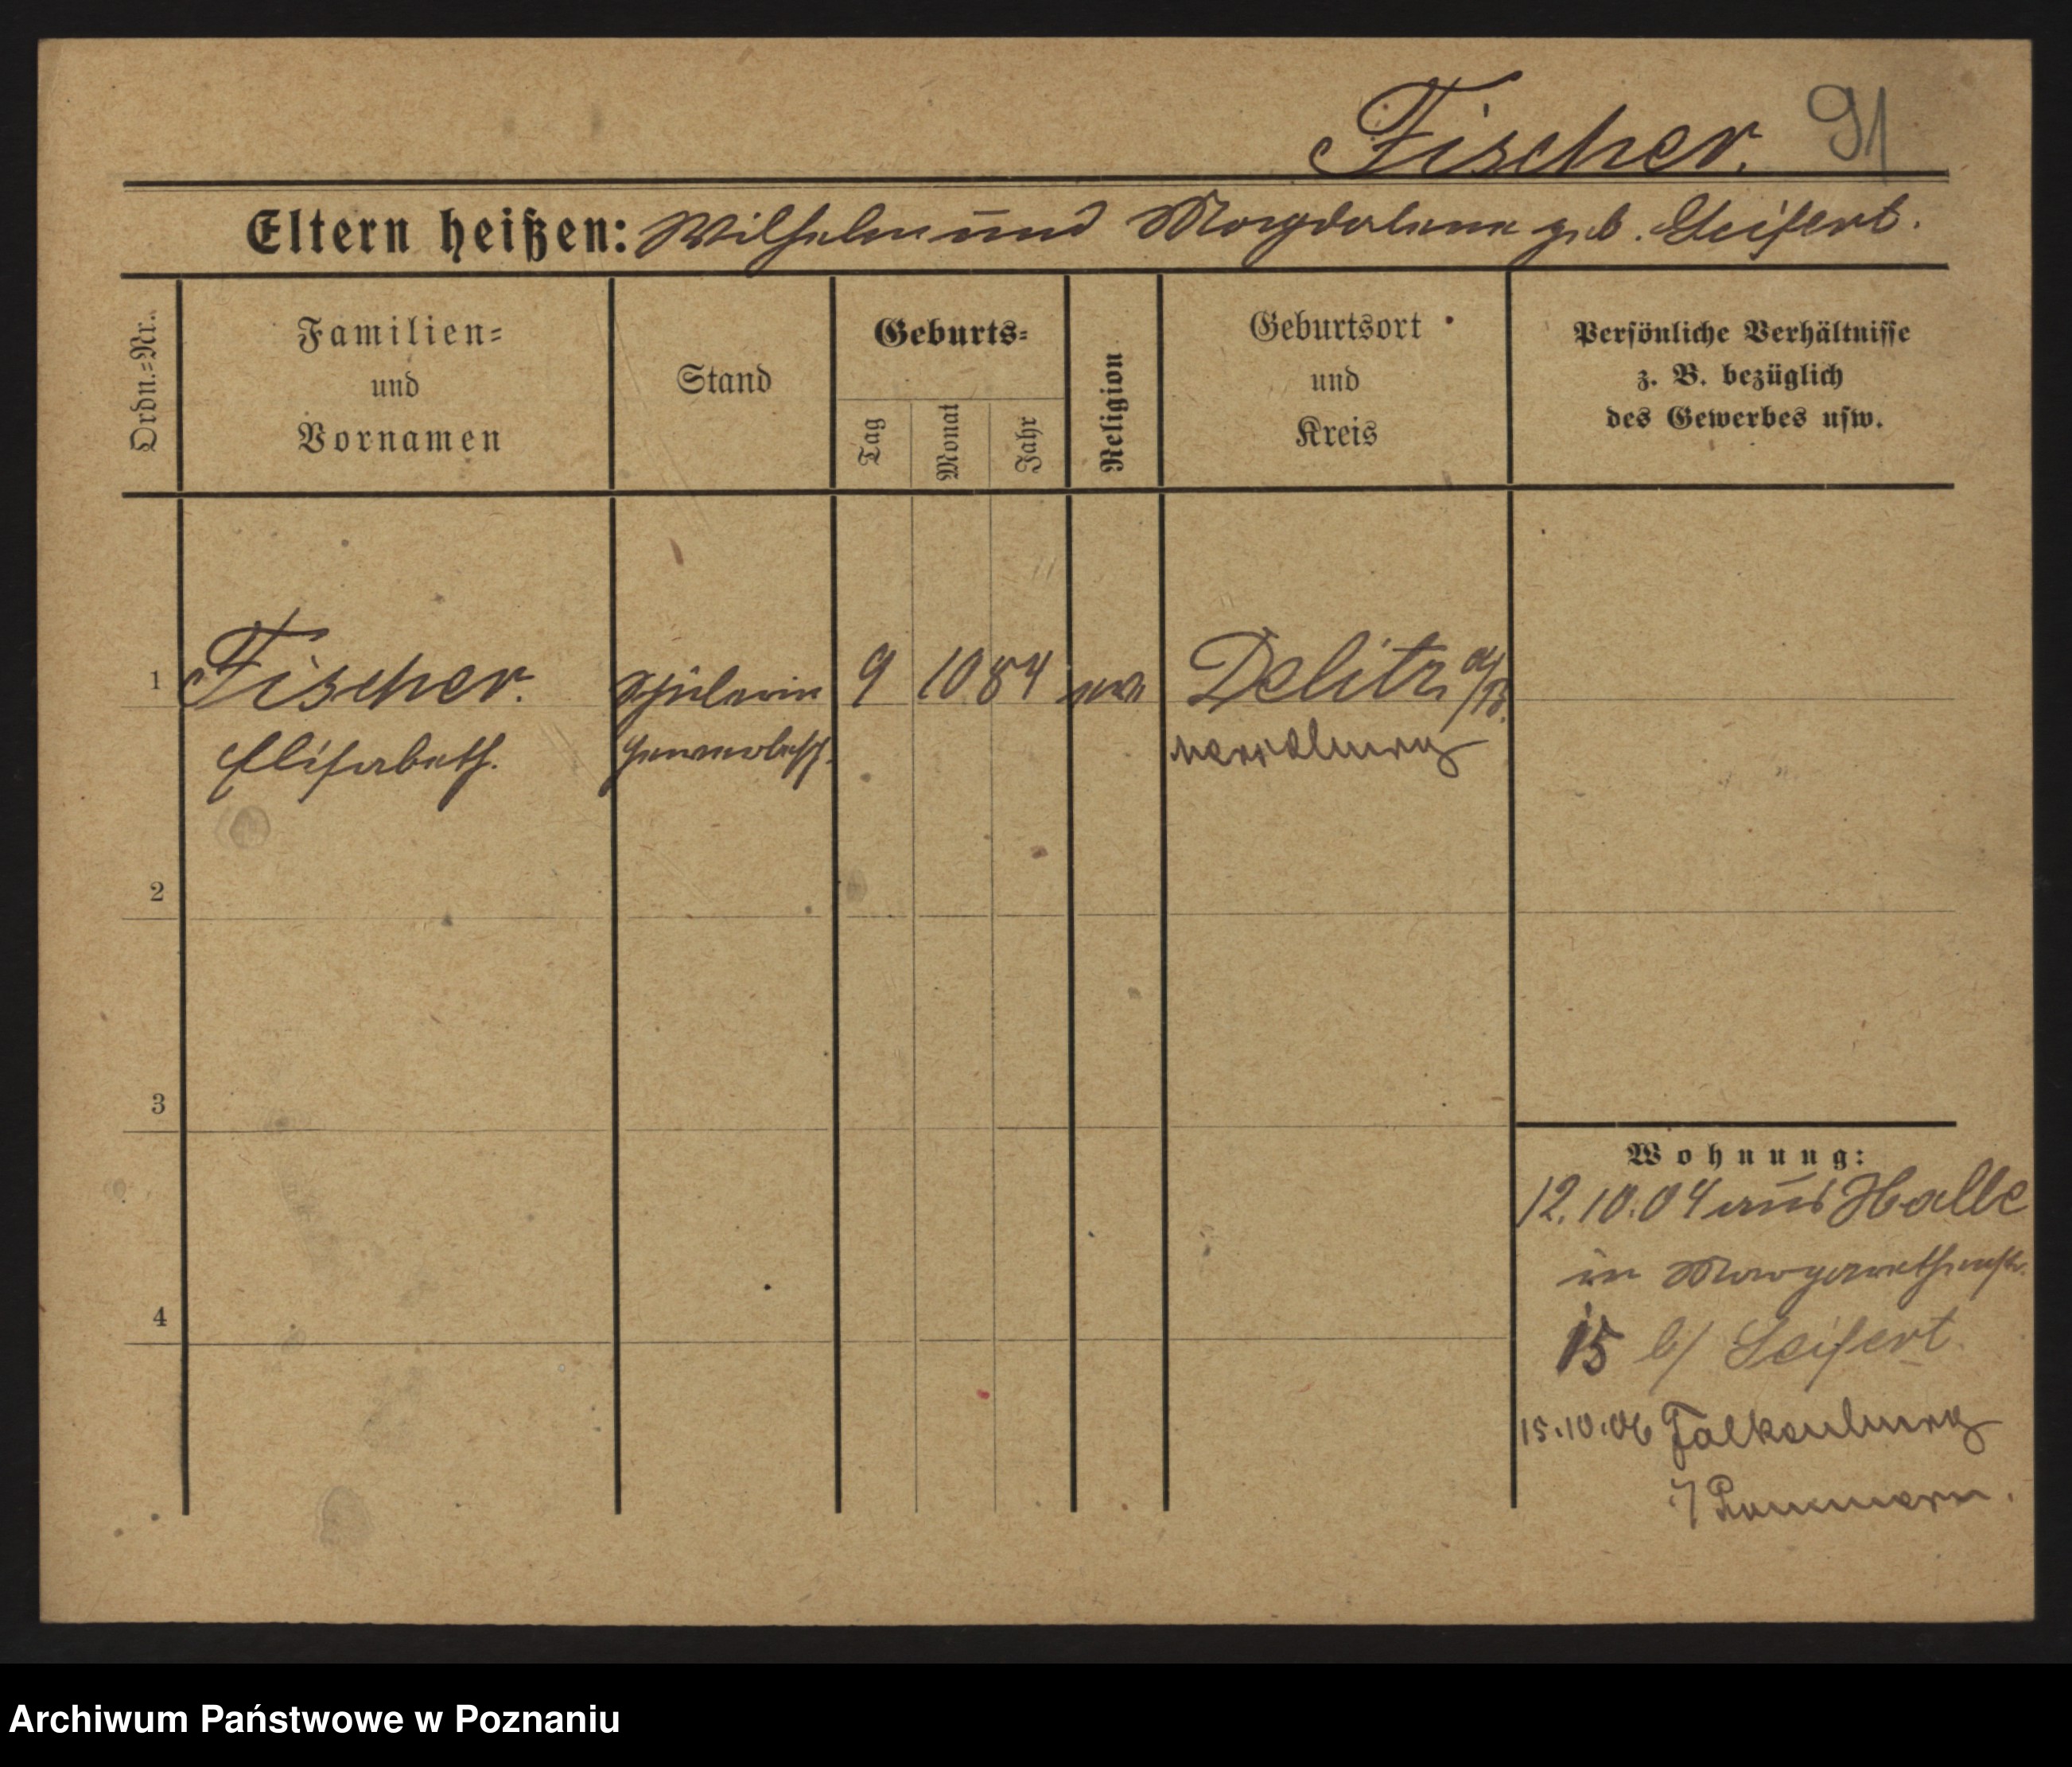 Fischer. 91
Eltern heißen: Wilhelm und Magdalena geb. Seifert.
Ordn.=Nr.
Familien=
und
Vornamen
Stand
Geburts=
Tag
Monat
Jahr
Religion
Geburtsort
und
Kreis
Persönliche Verhältnisse
z. B. bezüglich
des Gewerbes usw.
1 Fischer. Schülerin 9 10 84 ev. Delitz a/B.
Elisabeth. Gewerbesch. Merseburg
2
3
4
Wohnung:
12.10.04 aus Halle
in Margarethenstr.
15 b/ Seifert
15.10.06 Falkenburg
i/ Pommern.
Archiwum Państwowe w Poznaniu